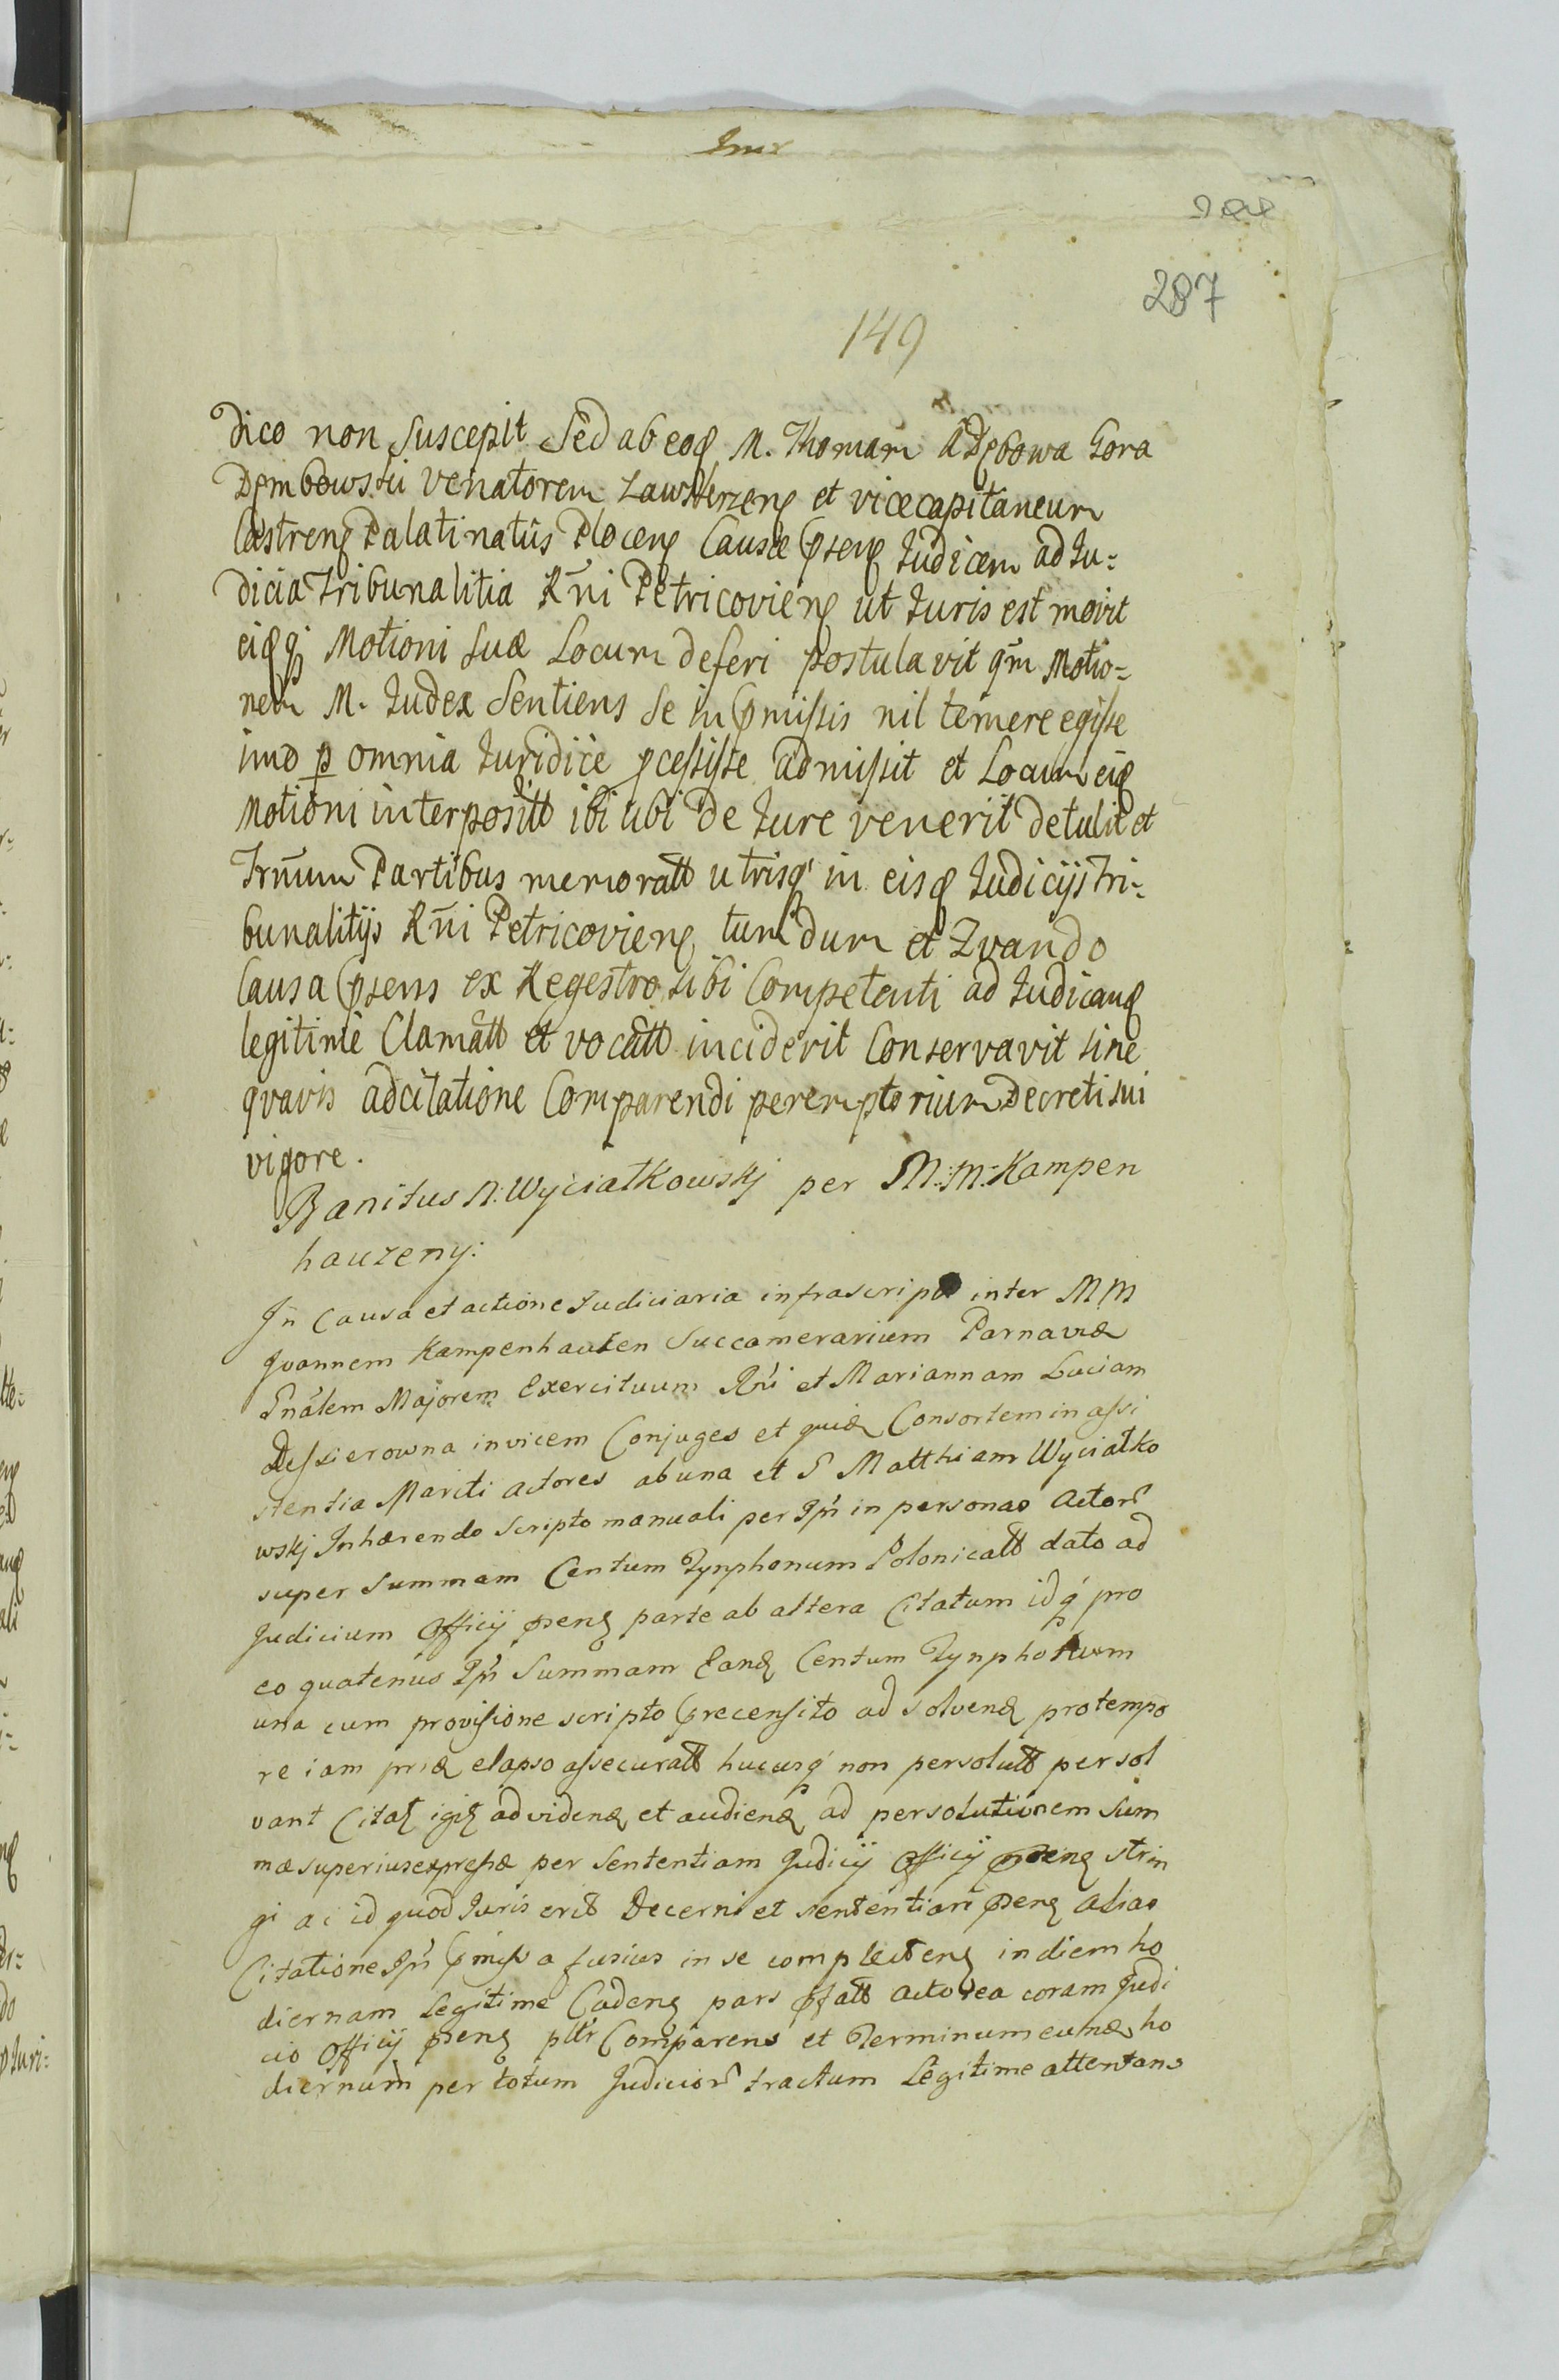 287
149
dico non suscepit sed ab eoq M. Thomam a Dębowa Gora
Dęmbowski Venatorem Zawskrzenę et vicecapitaneum
Castrenę Palatinatûs Plocenę Causæ pseneę Judicem ad Ju=
dicia Tribunalitia Rñi Petricovienę ut Juris est movit
eiqq Motioni suæ Locum deferi postulavit qm̃ Motio=
nem M. Judex Sentiens se in pmissis nil temere egisse
imo p omnia Juridice pcessisse admissit et Locum eiq
Motioni interpositt ibi ubi de Jure venerit detulit et
Trm̃um Partibus memoratt utrisq in eisq Judicijs Tri=
bunalitijs Rñi Petricovienę tum dum et Qvando
Causa psens ex Regestro sibi Competenti ad Judicanę
legitimè Clamatt et vocatt inciderit Conservavit sine
qvavis adcitatione Comparendi peremptorium Decreti sui
vigore.
Banitus N. Wyciatkowskj per M. M. Kampen
hauzeny:
In Causa et actione Judiciaria infrascript inter MM
Joannem Kampenhauzen Succamerarium Parnaviæ
Gnãlem Majorem Exercituum Rñi et Mariannam Luciam
invicem Conjuges et quidę Consortem in assi
stentia Mariti actores ab una et G Matthiam Wyciatko
wskj Inhærendo scripto manuali per Ipm̃ in personas Actor
super Summam Centum Tynphonum Polonicatt dato ad
Judicium Officij psenę parte ab altera Citatum idq pro
eo quatenus Ipm̃ Summam Eandę Centum Tynphonum
una cum provisione scripto precensito ad solvendę pro tempo
re iam pridę elapso assecuratt hucusq non persolutt persol
vant Citatę igitę ad videndę et audiendę ad persolutionem Sum
mæ superius expressæ per Sententiam Judicij Officij psenę strin
gi ac id quod Juris erit Decerni et sententiari psenę alias
Citatione Ipm̃ pmissa fusius in se complectenę in diem ho
diernam Legitime Cadenę pars pfatt actorea coram Judi
cio Officij psenę pltr Comparens et Terminum eumdę ho
diernum per totum Judicior tractum Legitime attentans